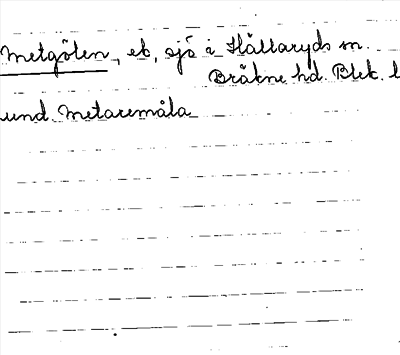 Metgölen, ek, sjö i Hällaryds sn.
Bräkne hd. Blek. l
und. Metaremåla